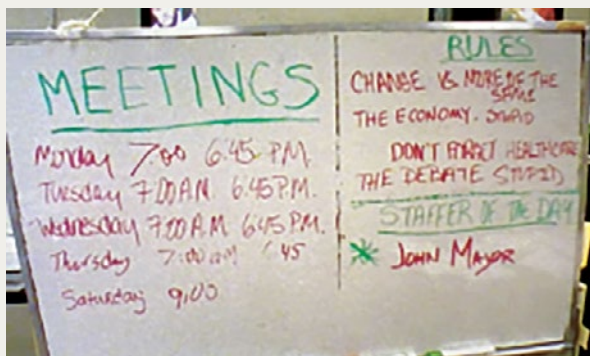 MEETINGS
Monday 7:00 6:45 P.M.
Tuesday 7:00 A.M. 6:45 P.M.
Wednesday 7:00 A.M 6:45 P.M.
Thursday 7:00 am 6:45
Saturday 9:00
RULES
CHANGE VS MORE OF THE
SAME
THE ECONOMY. STUPID
DON'T FORGET HEALTHCARE
THE DEBATE STUPID
STAFFER OF THE DAY
JOHN MAYOR